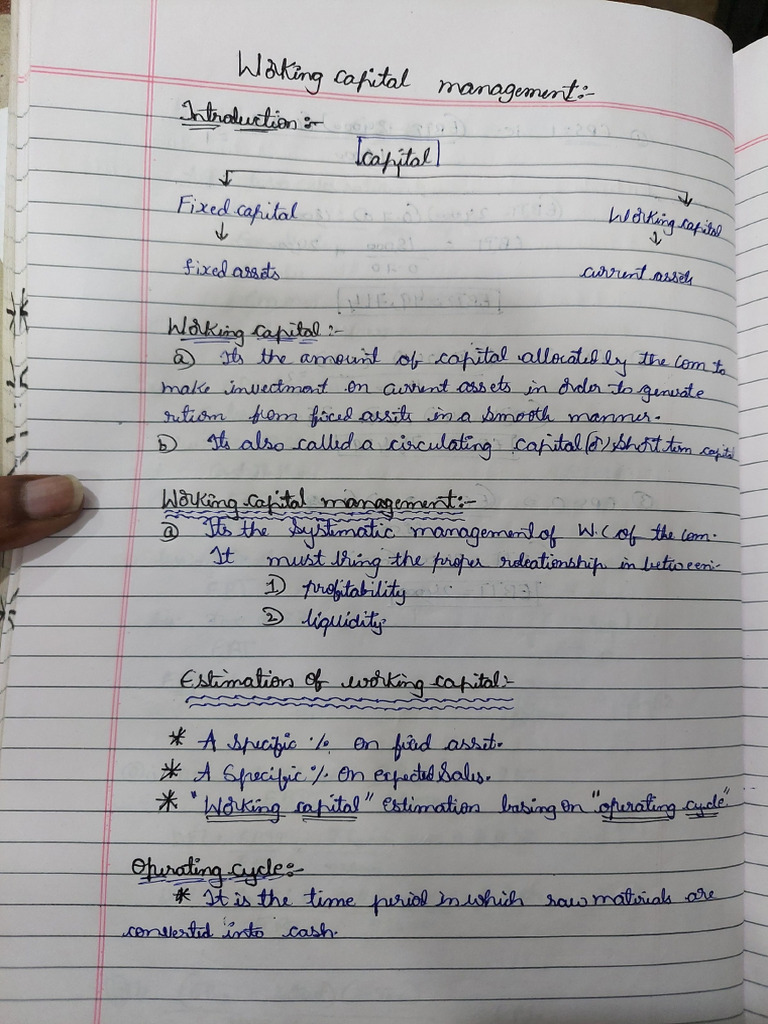 Working capital management:-
Introduction:-
capital
Fixed capital Working capital
fixed assets current assets
Working capital:-
a) Its the amount of capital allocated by the com to
make investment on current assets in order to generate
return from fixed assets in a smooth manner.
b) Its also called a circulating capital (or) short term capital
Working capital management:-
a) Its the systematic management of W.C of the com.
It must bring the proper roleationship in between:-
1) profitability
2) liquidity.
Estimation of working capital:-
* A specific % on fixed asset.
* A specific % on expected sales.
* "Working capital" estimation basing on "operating cycle"
Operating cycle:-
* It is the time period in which raw materials are
converted into cash.